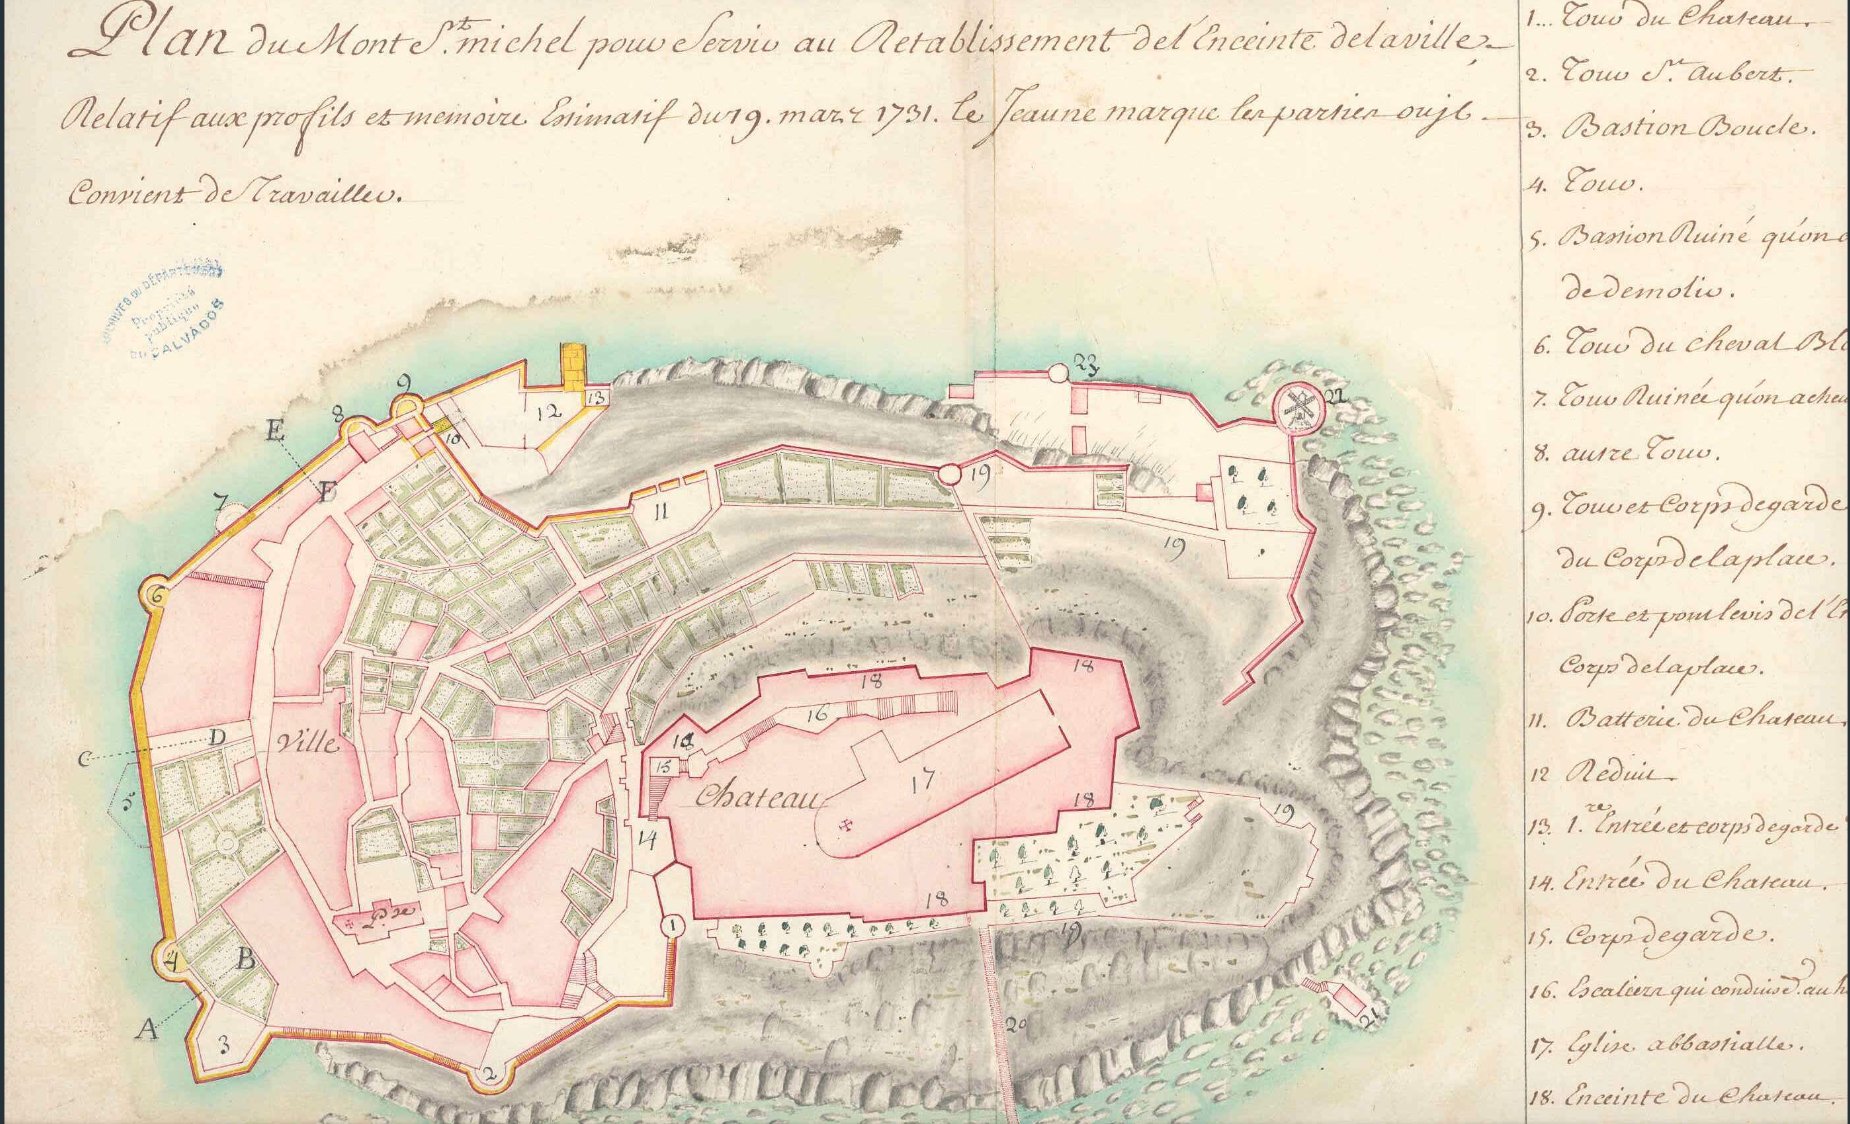 Plan du Mont St. michel pour Servir au Retablissement de l'Enceinte de la ville
Relatif aux profils et memoire Estimatif du 19. mars 1731. le Jeaune marque les parties ou jl
Convient de Travailler.
1... Tour du Chateau.
2. Tour St. Aubert.
3. Bastion Boucle.
4. Tour.
5. Bastion Ruiné qu'on a
de demolir.
6. Tour du cheval Bl
7. Tour Ruinée qu'on acheu
8. autre Tour.
9. Tour et Corps de garde
du Corps de la place.
10. Porte et pont levis de l'E
Corps de la place.
11. Batterie du Chateau.
12 Reduit
13. 1.re Entrée et corps de garde
14. Entrée du Chateau.
15. Corps de garde.
16. Escaliers qui conduise.t au h
17. Eglise abbatialle.
18. Enceinte du Chateau.
ARCHIVES DU DÉPARTEMENT
Propriété
publique
DU CALVADOS
23
22
9
8
13
12
E
10
F
7
11
19
19
6
18
18
16
D
Ville
C
18
15
Chateau
17
5
18
19
14
18
Psse
1
19
4
B
21
A
20
3
2